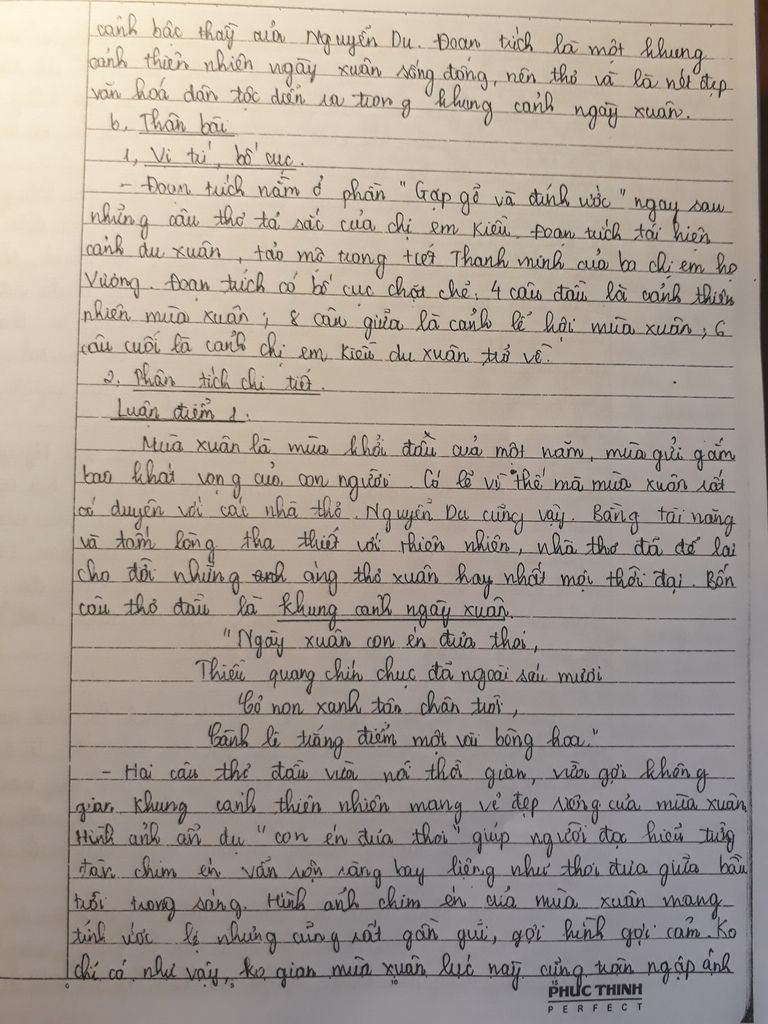 cảnh bậc thầy của Nguyễn Du. Đoạn trích là một khung
cảnh thiên nhiên ngày xuân sống động, nên thơ và là nét đẹp
văn hoá dân tộc diễn ra trong khung cảnh ngày xuân.
b, Thân bài
1, Vị trí, bố cục.
- Đoạn trích nằm ở phần "Gặp gỡ và đính ước" ngay sau
những câu thơ tả sắc của chị em Kiều. Đoạn trích tái hiện
cảnh du xuân, tảo mộ trong tiết Thanh minh của ba chị em họ
Vương. Đoạn trích có bố cục chặt chẽ, 4 câu đầu là cảnh thiên
nhiên mùa xuân; 8 câu giữa là cảnh lễ hội mùa xuân; 6
câu cuối là cảnh chị em Kiều du xuân trở về.
2. Phân tích chi tiết.
Luận điểm 1.
Mùa xuân là mùa khởi đầu của một năm, mùa gửi gắm
bao khát vọng của con người. Có lẽ vì thế mà mùa xuân rất
có duyên với các nhà thơ. Nguyễn Du cũng vậy. Bằng tài năng
và tấm lòng tha thiết với thiên nhiên, nhà thơ đã để lại
cho đời những áng thơ xuân hay nhất mọi thời đại. Bốn
câu thơ đầu là khung cảnh ngày xuân.
"Ngày xuân con én đưa thoi,
Thiều quang chín chục đã ngoài sáu mươi
Cỏ non xanh tận chân trời,
Cành lê trắng điểm một vài bông hoa."
- Hai câu thơ đầu vừa nói thời gian, vừa gợi không
gian khung cảnh thiên nhiên mang vẻ đẹp riêng của mùa xuân
Hình ảnh ẩn dụ "con én đưa thoi" giúp người đọc hiểu từng
đàn chim én vẫn rộn ràng bay liệng như thoi đưa giữa bầu
trời trong sáng. Hình ảnh chim én của mùa xuân mang
tính ước lệ nhưng cũng rất gần gũi, gợi hình gợi cảm. Ko
chỉ có như vậy, ko gian mùa xuân lúc này cũng tràn ngập ánh
PHUC THINH
PERFECT